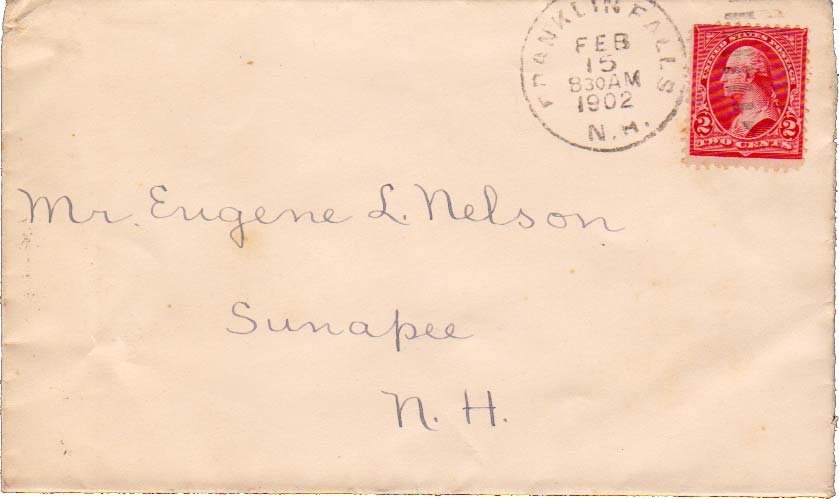 FRANKLIN FALLS
FEB
15
830AM
1902
N.H.
UNITED STATES POSTAGE
2 2
TWO CENTS
Mr. Eugene L. Nelson
Sunapee
N. H.